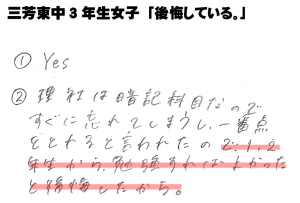 三芳東中3年生女子 「後悔している。」
① Yes
② 理社は暗記科目なので
すぐに忘れてしまうし、一番点
をとれると言われたので1,2
年生から、勉強すればよかった
と後悔したから。